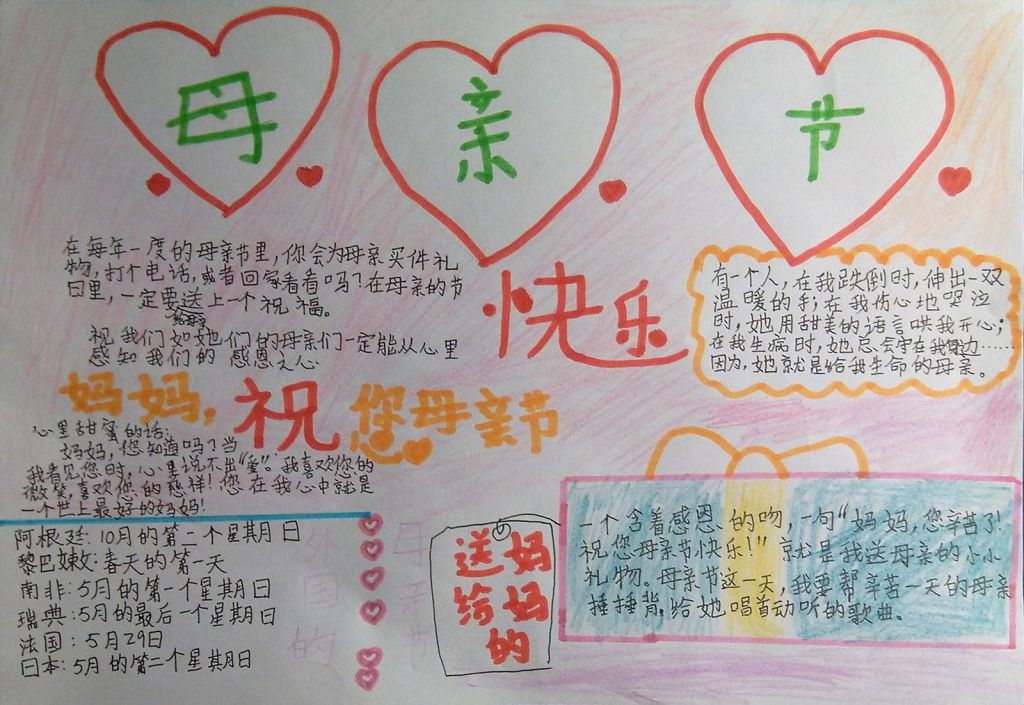 母 亲 节
在每年一度的母亲节里,你会为母亲买件礼
物,打个电话,或者回家看看吗?在母亲的节
日里,一定要送上一个祝福。
祝我们如她们的母亲们一定能从心里
感知我们的感恩之心
快乐
有一个人,在我跌倒时,伸出一双
温暖的手;在我伤心地哭泣
时,她用甜美的语言哄我开心;
在我生病时,她总会守在我身边……
因为,她就是给我生命的母亲。
妈妈,祝您母亲节
心里甜蜜的话:
妈妈,您知道吗?当
我看见您时,心里说不出“爱”。我喜欢您的
微笑,喜欢您的慈祥!您在我心中就是
一个世上最好的妈妈!
阿根廷:10月的第二个星期日
黎巴嫩:春天的第一天
南非:5月的第一个星期日
瑞典:5月的最后一个星期日
法国:5月29日
日本:5月的第二个星期日
外 母
国 亲
的 节
送妈
给妈
的
一个含着感恩的吻,一句“妈妈,您辛苦了!
祝您母亲节快乐!”就是我送母亲的小小
礼物。母亲节这一天,我要帮辛苦一天的母亲
捶捶背,给她唱首动听的歌曲。